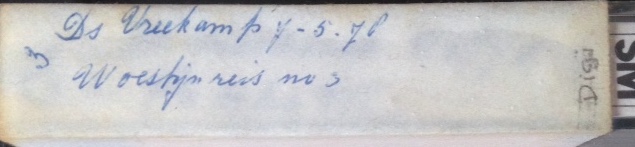 Ds Vreekamp 7-5-78
3
Woestijnreis no 3